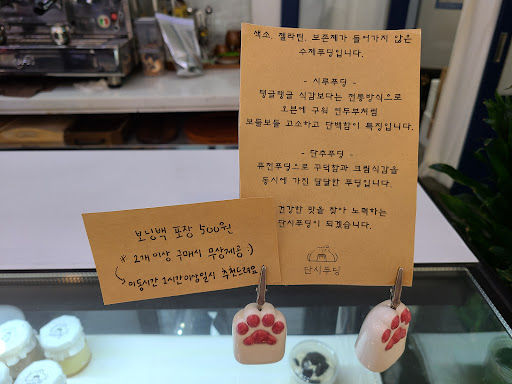 색소, 젤라틴, 보존제가 들어가지 않은
수제푸딩입니다.
- 시루푸딩 -
탱글탱글 식감보다는 전통방식으로
오븐에 구워 연두부처럼
보들보들 고소하고 담백함이 특징입니다.
- 단추푸딩 -
퓨전푸딩으로 꾸덕함과 크림식감을
동시에 가진 달달한 푸딩입니다.
건강한 맛을 찾아 노력하는
단시푸딩이 되겠습니다.
단시푸딩
보냉백 포장 500원
* 2개 이상 구매시 무상제공 :)
↳ 이동시간 1시간이상일시 추천드려요